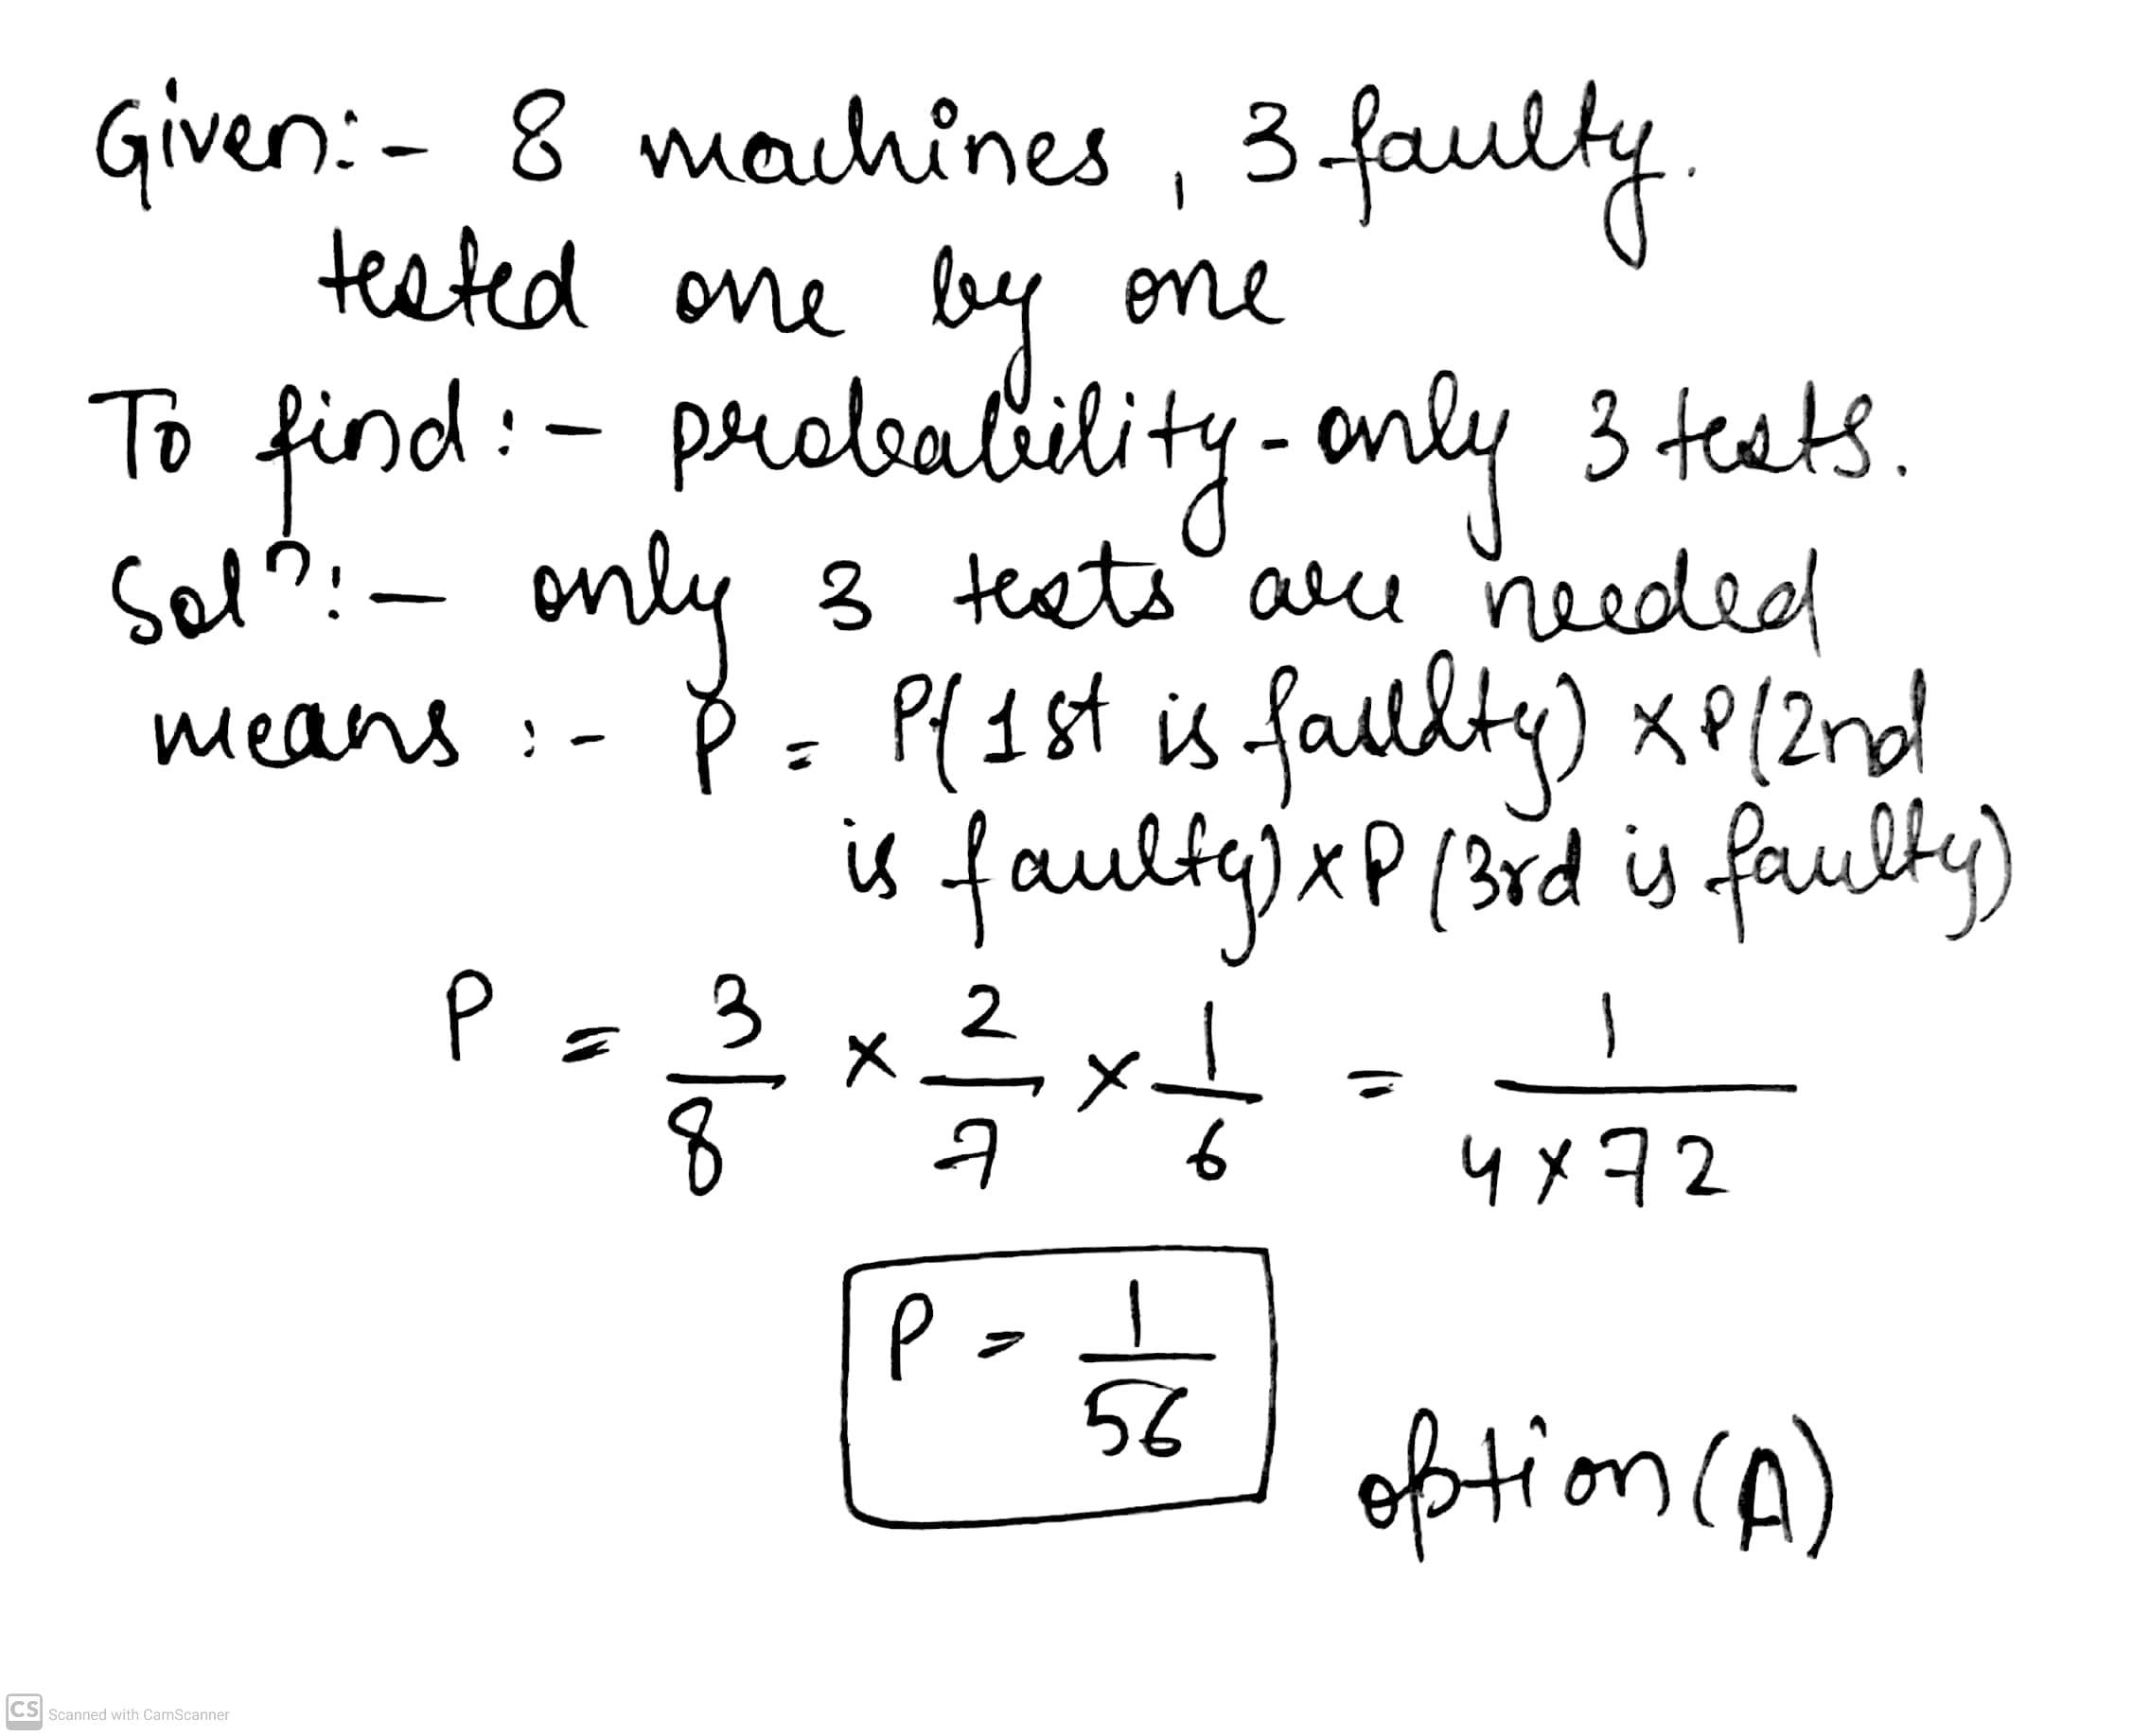 Given:- 8 machines, 3 faulty.
tested one by one
To find:- probability-only 3 tests.
Solⁿ:- only 3 tests are needed
means:- P = P(1st is faulty) x P(2nd
is faulty) x P(3rd is faulty)
P = 3/8 x 2/7 x 1/6 = 1/4x72
P = 1/56
option (A)
CS Scanned with CamScanner